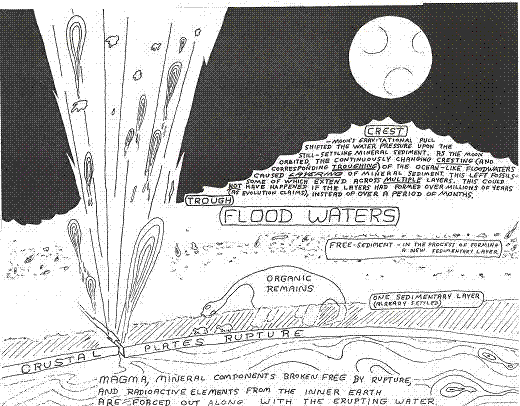 CREST
-MOON'S GRAVITATIONAL PULL
SHIFTED THE WATER PRESSURE UPON THE
STILL-SETTLING MINERAL SEDIMENT. AS THE MOON
ORBITED, THE CONTINUOUSLY CHANGING CRESTING (AND
CORRESPONDING TROUGHING) OF THE OCEAN-LIKE FLOODWATERS
CAUSED LAYERING OF MINERAL SEDIMENT. THIS LEFT FOSSILS-
SOME OF WHICH EXTEND ACROSS MULTIPLE LAYERS. THIS COULD
NOT HAVE HAPPENED IF THE LAYERS HAD FORMED OVER MILLIONS OF YEARS
(AS EVOLUTION CLAIMS), INSTEAD OF OVER A PERIOD OF MONTHS.
TROUGH
FLOOD WATERS
FREE-SEDIMENT - IN THE PROCESS OF FORMING
A NEW SEDIMENTARY LAYER
ORGANIC
REMAINS
ONE SEDIMENTARY LAYER
(ALREADY SETTLED)
CRUSTAL PLATES RUPTURE
-MAGMA, MINERAL COMPONENTS BROKEN FREE BY RUPTURE,
AND RADIOACTIVE ELEMENTS FROM THE INNER EARTH
ARE FORCED OUT ALONG WITH THE ERUPTING WATER.